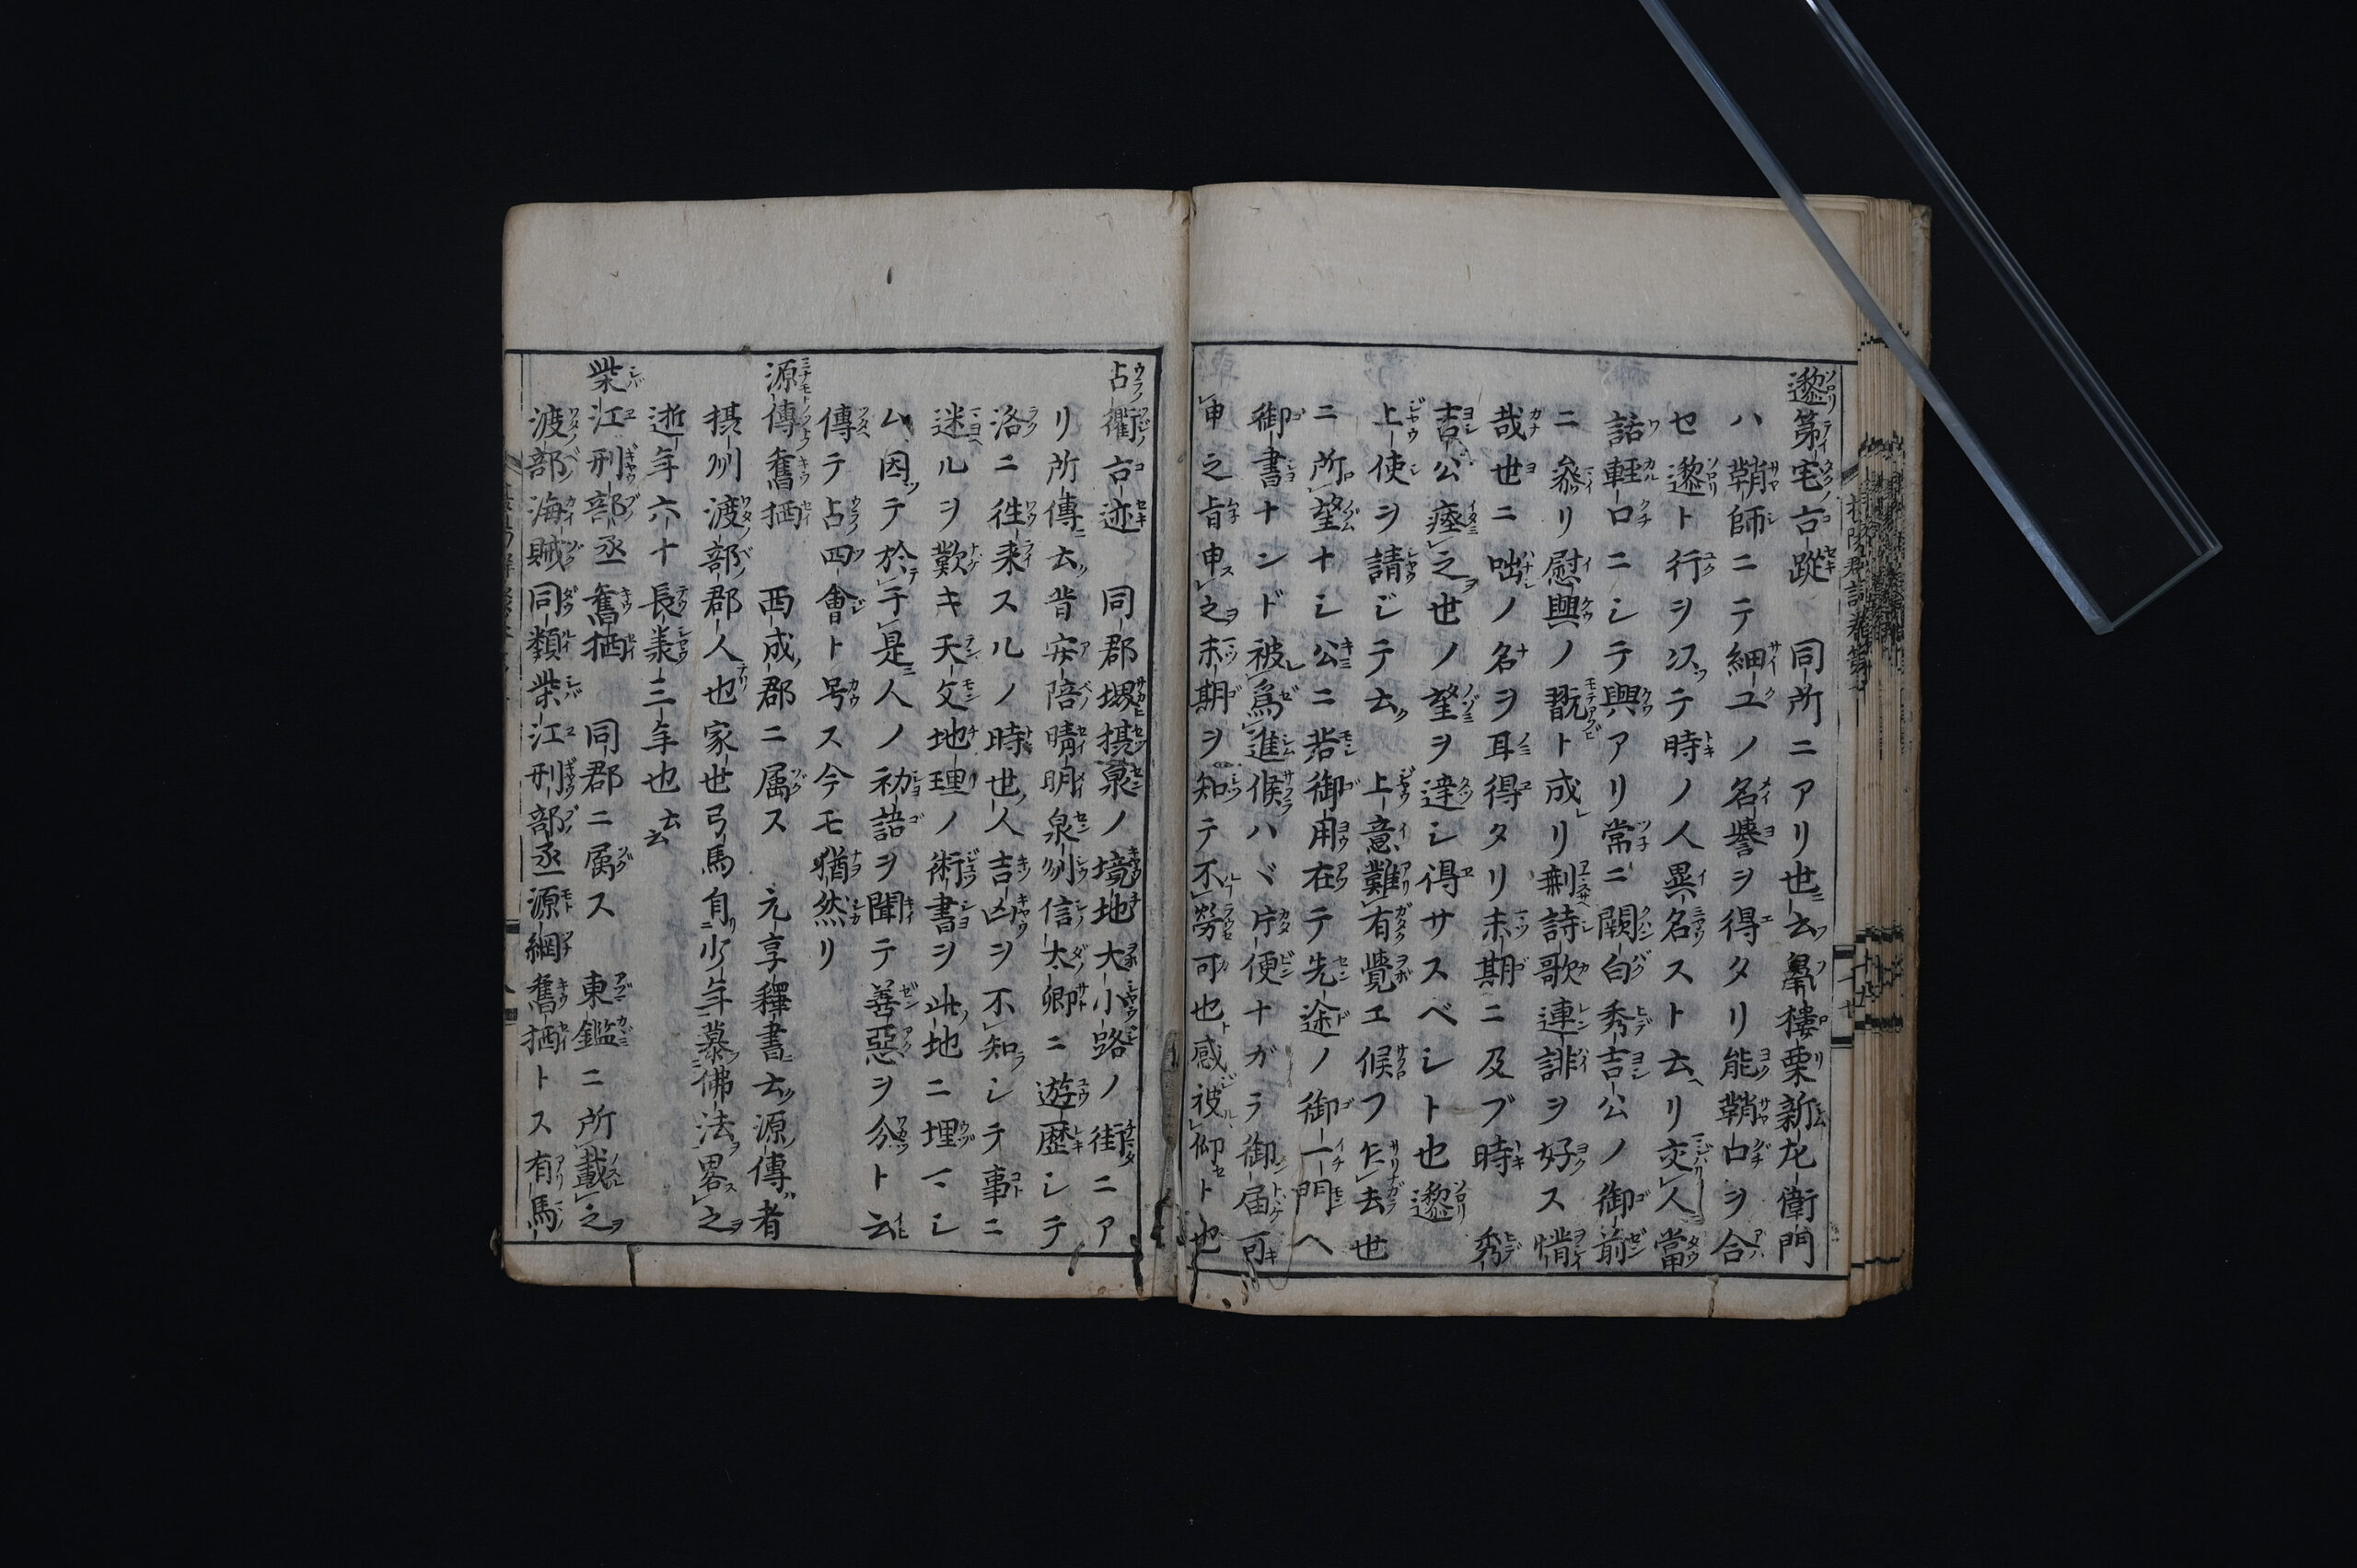 邌第宅古蹤 同所ニアリ也云鼻樓栗新左衛門
ハ鞘師ニテ細工ノ名譽ヲ得タリ能鞘口ヲ合
セ邌ト行ヲ以テ時ノ人異名スト云リ交人當
話軽口ニシテ興アリ常ニ關白秀吉公ノ御前
ニ参リ慰興ノ翫ト成リ剰詩歌連誹ヲ好ス惜
哉世ニ咄ノ名ヲ耳得タリ末期ニ及ブ時 秀
吉公痙之世ノ望ヲ達シ得サスベシト也邌
上使ヲ請ジテ云 上意難有覺エ候フ乍去世
ニ所望ナシ公ニ若御用在テ先途ノ御一門ヘ
御書ナンド被爲進候ハヾ片便ナガラ御届可
申之旨申之末期ヲ知テ不勞可也感被仰ト也
占衢古迹 同郡堺摂泉ノ境地大小路ノ街ニア
リ所傳云昔安陪晴明泉州信太郷ニ遊歴シテ
洛ニ徃来スルノ時世人吉凶ヲ不知シテ事ニ
迷ルヲ歎キ天文地理ノ術書ヲ此地ニ埋マシ
ム因テ於于是人ノ初語ヲ聞テ善惡ヲ分ト云
傳テ占四會ト号ス今モ猶然リ
源傳舊栖 西成郡ニ属ス 元亨釋書云源傳者
摂州渡部郡人也家世弓馬自少年慕佛法畧之
逝年六十長業三年也云云
柴江刑部丞舊栖 同郡ニ属ス 東鑑ニ所載之
渡部海賊同類柴江刑部丞源綱舊栖トス有馬